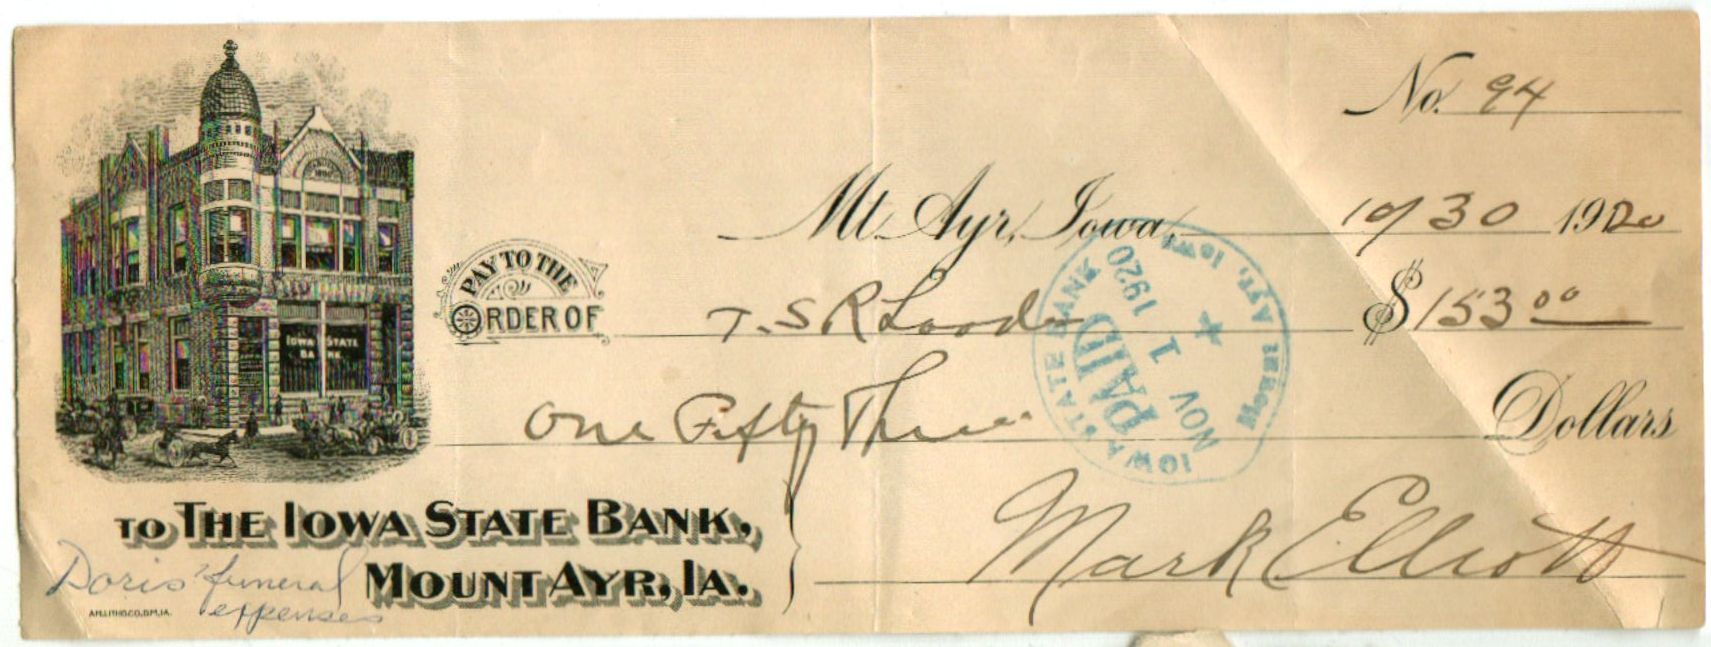 No. 94
Mt. Ayr, Iowa, 10/30 1920
PAY TO THE
ORDER OF T. S R Loods $153 00
One Fifty Three Dollars
IOWA STATE BANK
PAID
NOV 1 1920
MOUNT AYR, IOWA
IOWA STATE
BANK
TO THE IOWA STATE BANK,
MOUNT AYR, IA.
Mark Elliott
Doris' funeral
expenses